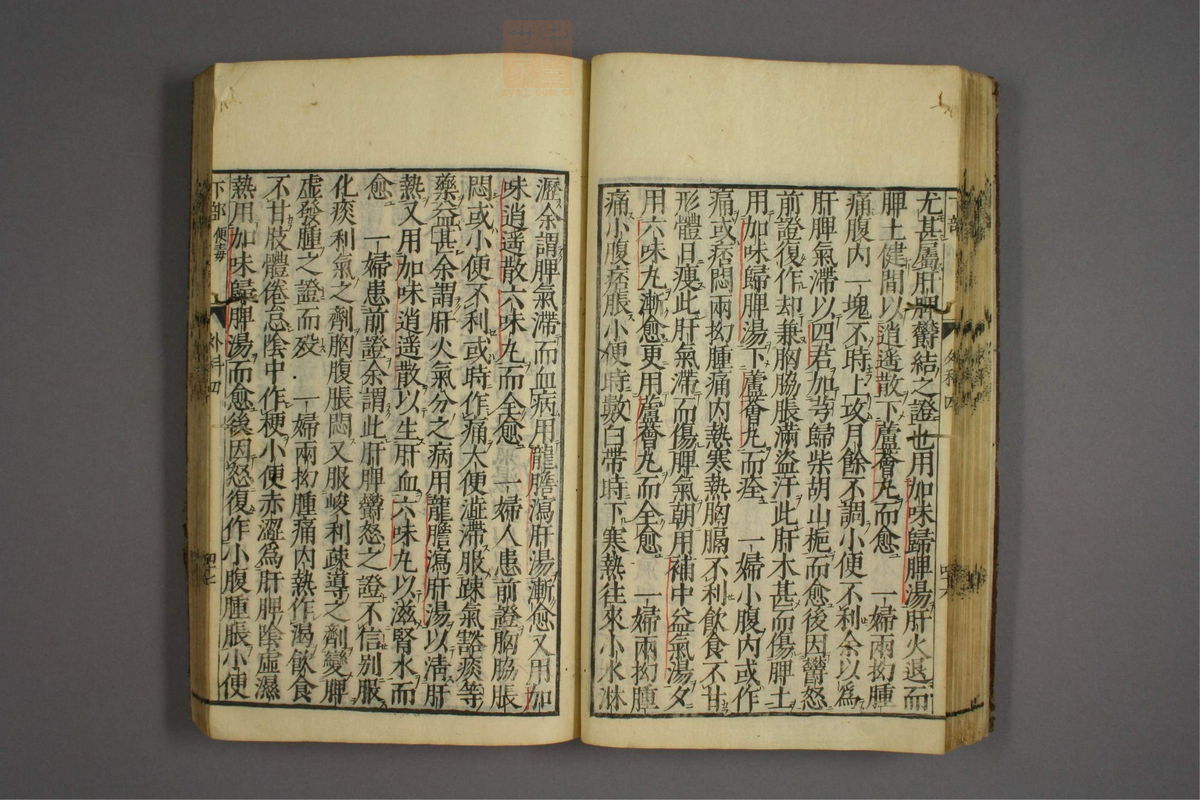 尤甚屬肝脾欝結之證也用加味歸脾湯肝火退而
脾土健間以逍遥散下蘆薈丸而愈　一婦兩拗腫
痛腹内一塊不時上攻月餘不調小便不利余以爲
肝脾氣滯以四君加芎歸柴胡山梔而愈後因欝怒
前證復作却兼胸脇脹滿盗汗此肝木甚而傷脾土
用加味歸脾湯下蘆薈丸而痊　一婦小腹内或作
痛或痞悶兩拗腫痛内熱寒熱胸膈不利飲食不甘
形體日瘦此肝氣滯而傷脾氣朝用補中益氣湯夕
用六味丸漸愈更用蘆薈丸而全愈　一婦兩拗腫
痛小腹痞脹小便時數白帶時下寒熱往來小水淋
瀝余謂脾氣滯而血病用龍膽瀉肝湯漸愈又用加
味逍遥散六味丸而全愈　一婦人患前證胸脇脹
悶或小便不利或時作痛大便澁滯服踈氣豁痰等
藥益甚余謂肝火氣分之病用龍膽瀉肝湯以清肝
熱又用加味逍遥散以生肝血六味丸以滋腎水而
愈　一婦患前證余謂此肝脾欝怒之證不信别服
化痰利氣之劑胸腹脹悶又服峻利疎導之劑變脾
虚發腫之證而殁　一婦兩拗腫痛内熱作渴飲食
不甘肢體倦怠陰中作梗小便赤澀爲肝脾陰虚濕
熱用加味歸脾湯而愈後因怒復作小腹腫脹小便
下部　便毒　外科四　四十七